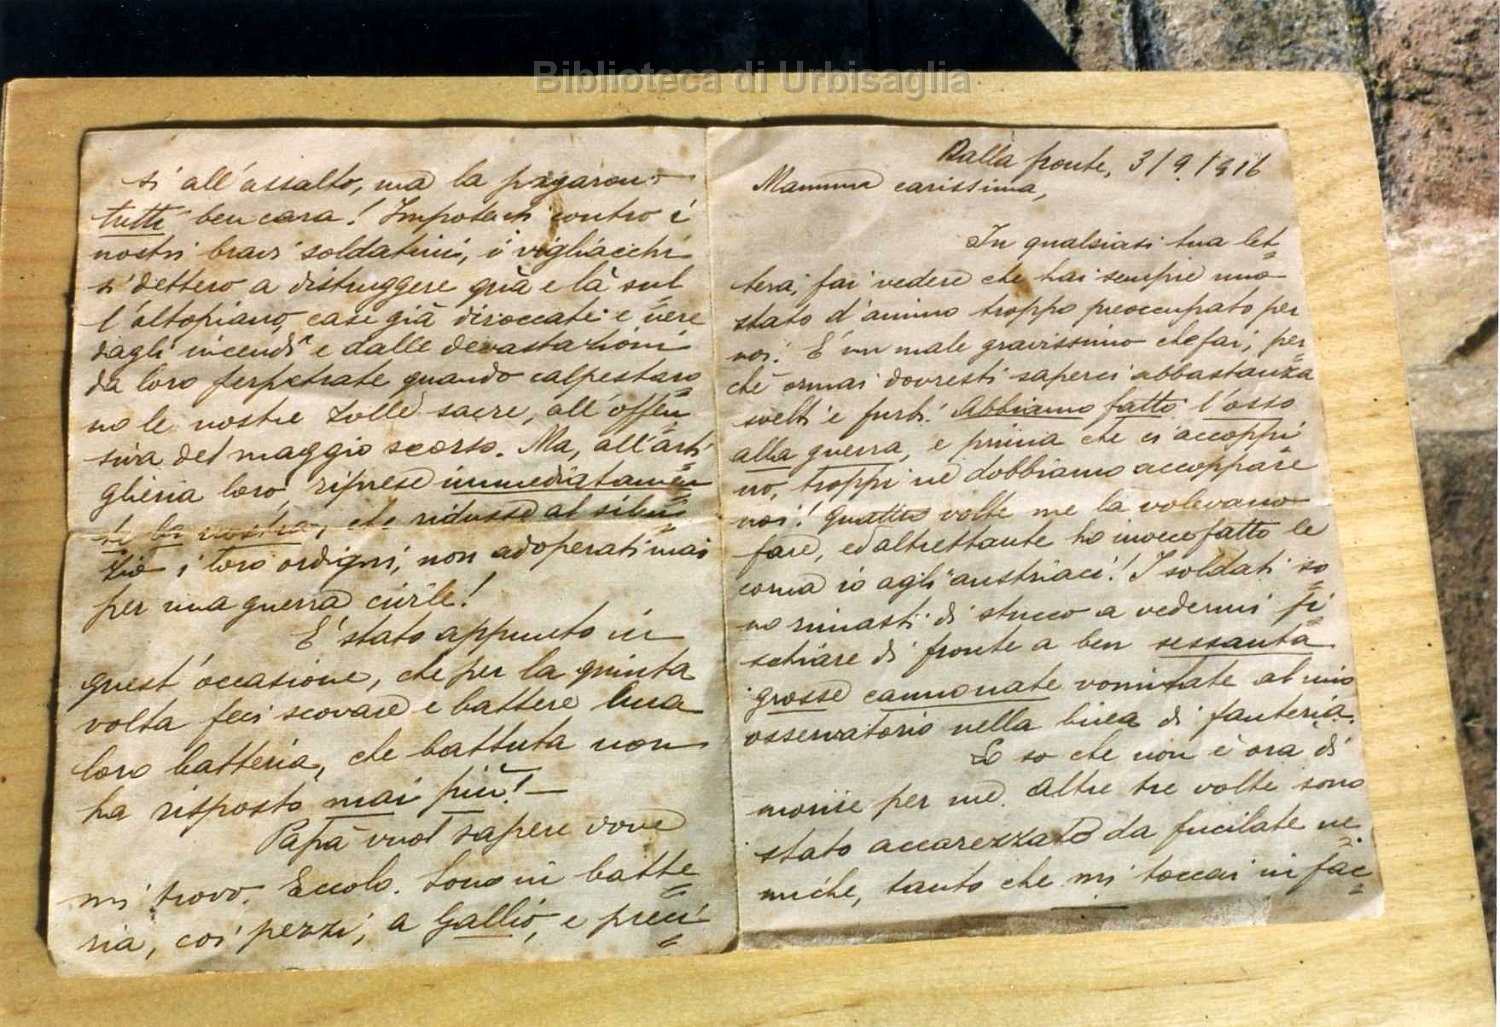 Biblioteca di Urbisaglia
Dalla fronte, 3/9/916
Mamma carissima,
In qualsiasi tua let=
tera, fai vedere che hai sempre uno
stato d'animo troppo preoccupato per
noi. È un male gravissimo che fai, per=
chè ormai dovresti saperci abbastanza
svelti e furbi. Abbiamo fatto l'osso
alla guerra, e prima che ci accoppi
no, troppi ne dobbiamo accoppare
noi! Quattro volte me la volevano
fare, ed altrettante ho invece fatto le
corna io agli austriaci! I soldati so=
no rimasti di stucco a vedermi fi=
schiare di fronte a ben sessanta
grosse cannonate vomitate al mio
osservatorio nella linea di fanteria.
Lo so che non è ora di
morire per me. Altre tre volte sono
stato accarezzato da fucilate ne=
miche, tanto che mi toccai in fac=
si all'assalto, ma la pagarono
tutti ben cara! Impotenti contro i
nostri bravi soldatini, i vigliacchi
si dettero a distruggere quà e là sul=
l'altopiano, case già diroccate e nere
dagli incendi e dalle devastazioni
da loro perpetrate quando calpestaro=
no le nostre zolle sacre, all'offen=
siva del maggio scorso. Ma, all'arti=
glieria loro rispose immediatamen=
te la nostra, che ridusse al silen=
zio i loro ordigni, non adoperati mai
per una guerra civile!
È stato appunto in
quest'occasione, che per la quinta
volta feci scovare e battere una
loro batteria, che battuta non
ha risposto mai più! —
Papà vuol sapere dove
mi trovo. Eccolo. Sono in batte=
ria, coi pezzi, a Gallio, e preci=